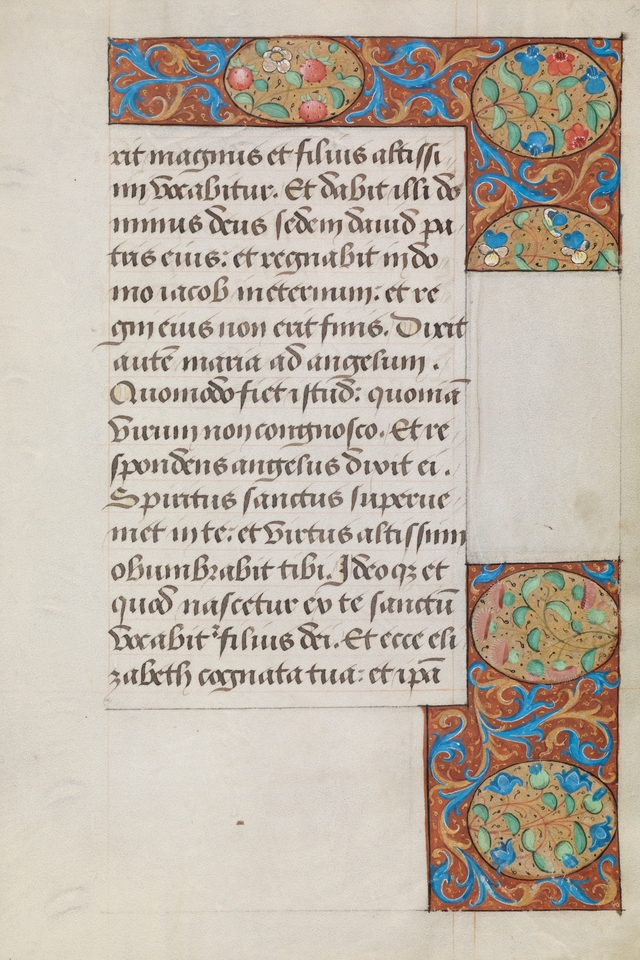 rit magnus et filius altissi
mi vocabitur. Et dabit illi do
minus deus sedem dauid pa
tris eius: et regnabit in do
mo iacob in eternum: et re
gni eius non erit finis. Dixit
autē maria ad angelum.
Quomodo fiet istud: quoniā
virum non congnosco. Et re
spondens angelus dixit ei.
Spiritus sanctus superue
niet in te: et virtus altissimi
obumbrabit tibi. Ideoqz et
quod nascetur ex te sanctū
vocabitᷣ filius dei. Et ecce eli
zabeth cognata tua: et ipā